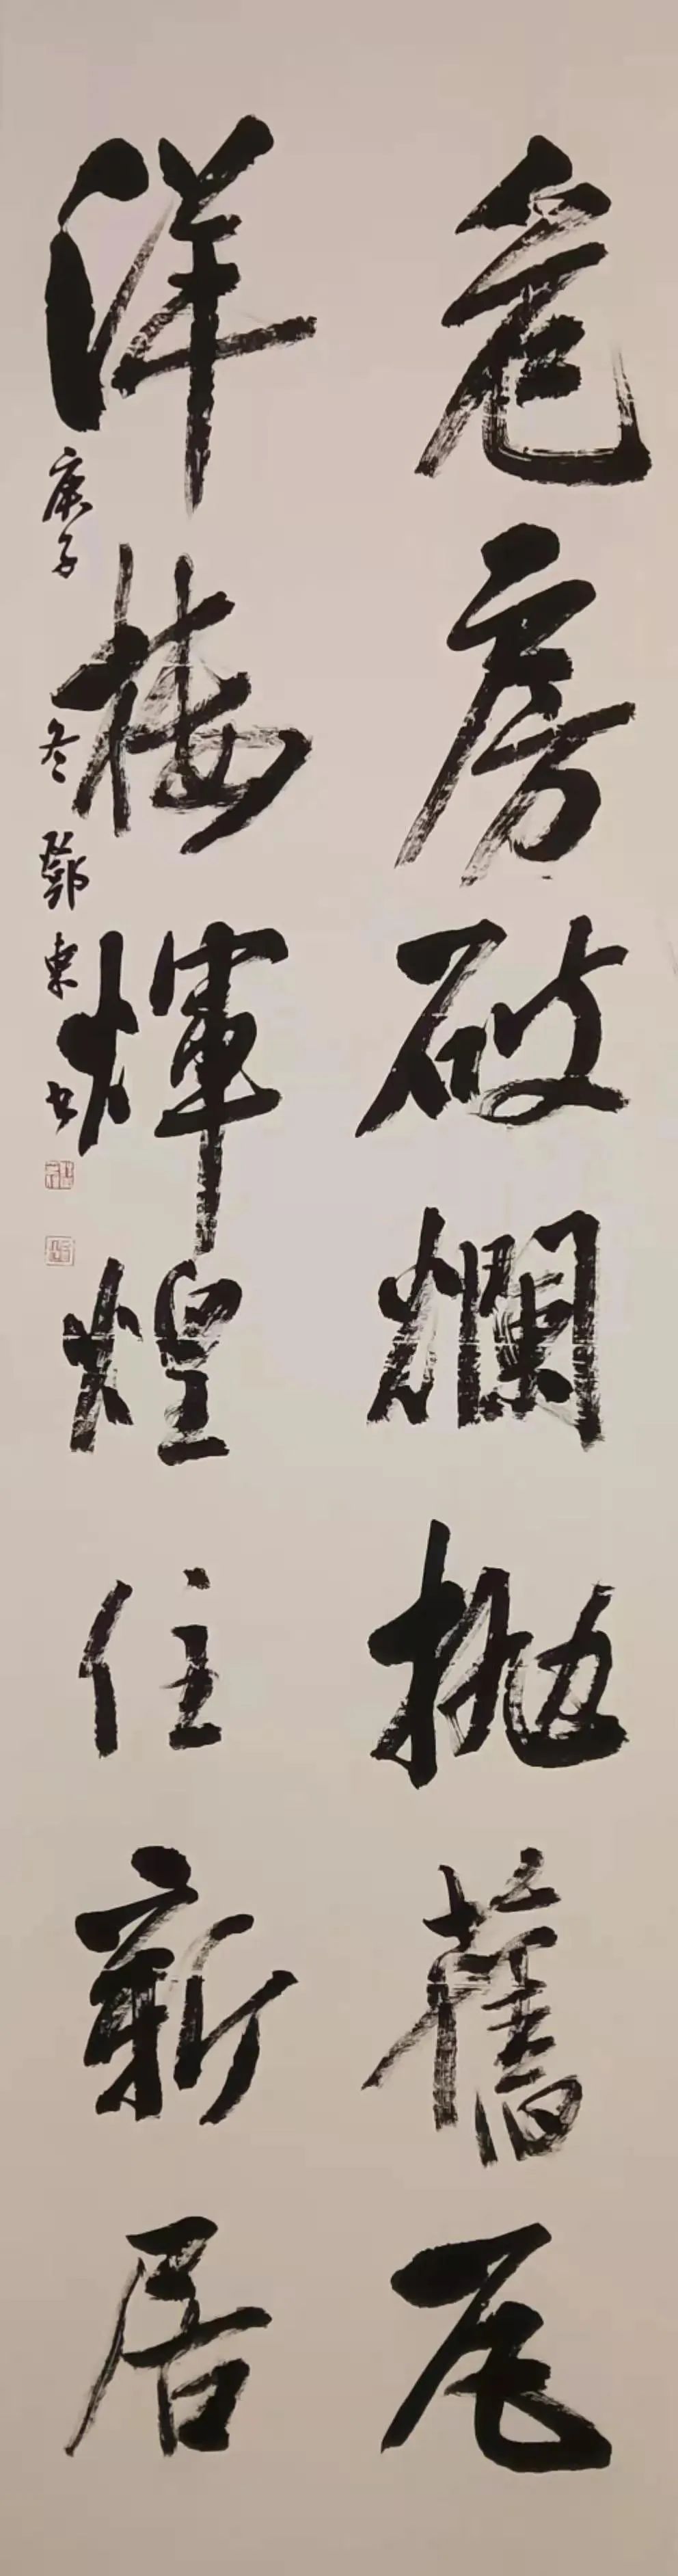 危房破爛抛舊瓦
洋樓輝煌住新居
庚子冬鄧東書